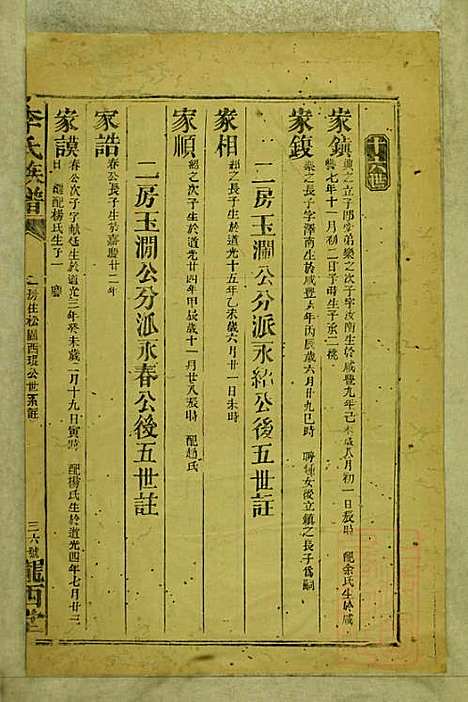 十八世
家鎮 典之立子即堂弟樂之次子字汝南生於咸豐九年己未歲八月初一日辰時 配余氏生於咸
豐七年十一月初二日子時生子承二桃
家鍑 樂之長子字澤南生於咸豐六年丙辰歲六月廿九巳時 聘鍾女後立鎮之長子為嗣
二房玉澗公分派永紹公後五世註
家相 紹之長子生於道光十五年乙未歲六月廿一日未時
家順 紹之次子生於道光廿四年甲辰歲十一月廿八辰時 配趙氏
二房玉澗公分派永春公後五世註
家誥 春公長子生於嘉慶廿二年
家謨 春公次子字献廷生於道光三年癸未歲二月十九日寅時 配楊氏生於道光四年七月廿三
日 繼配楊氏生子 慶
李氏族譜
二房住松園西琨公世系註
三六號
隴西堂